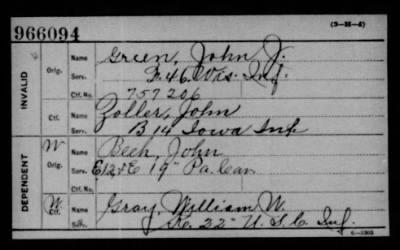 966094
(3—H—4)
INVALID
Orig.
Name Green, John J.
Serv. F. 46. Wis. Inf.
Ctf. No. 757206
Ctf.
Name Zoller, John
Serv. B 14 Iowa Inf
DEPENDENT
W
Orig.
Name Beeh, John
Serv. E 12 & E 19" Pa. Cav
W
Ctf.
Name Gray, William W.
Serv. 22" U. S. C. Inf.